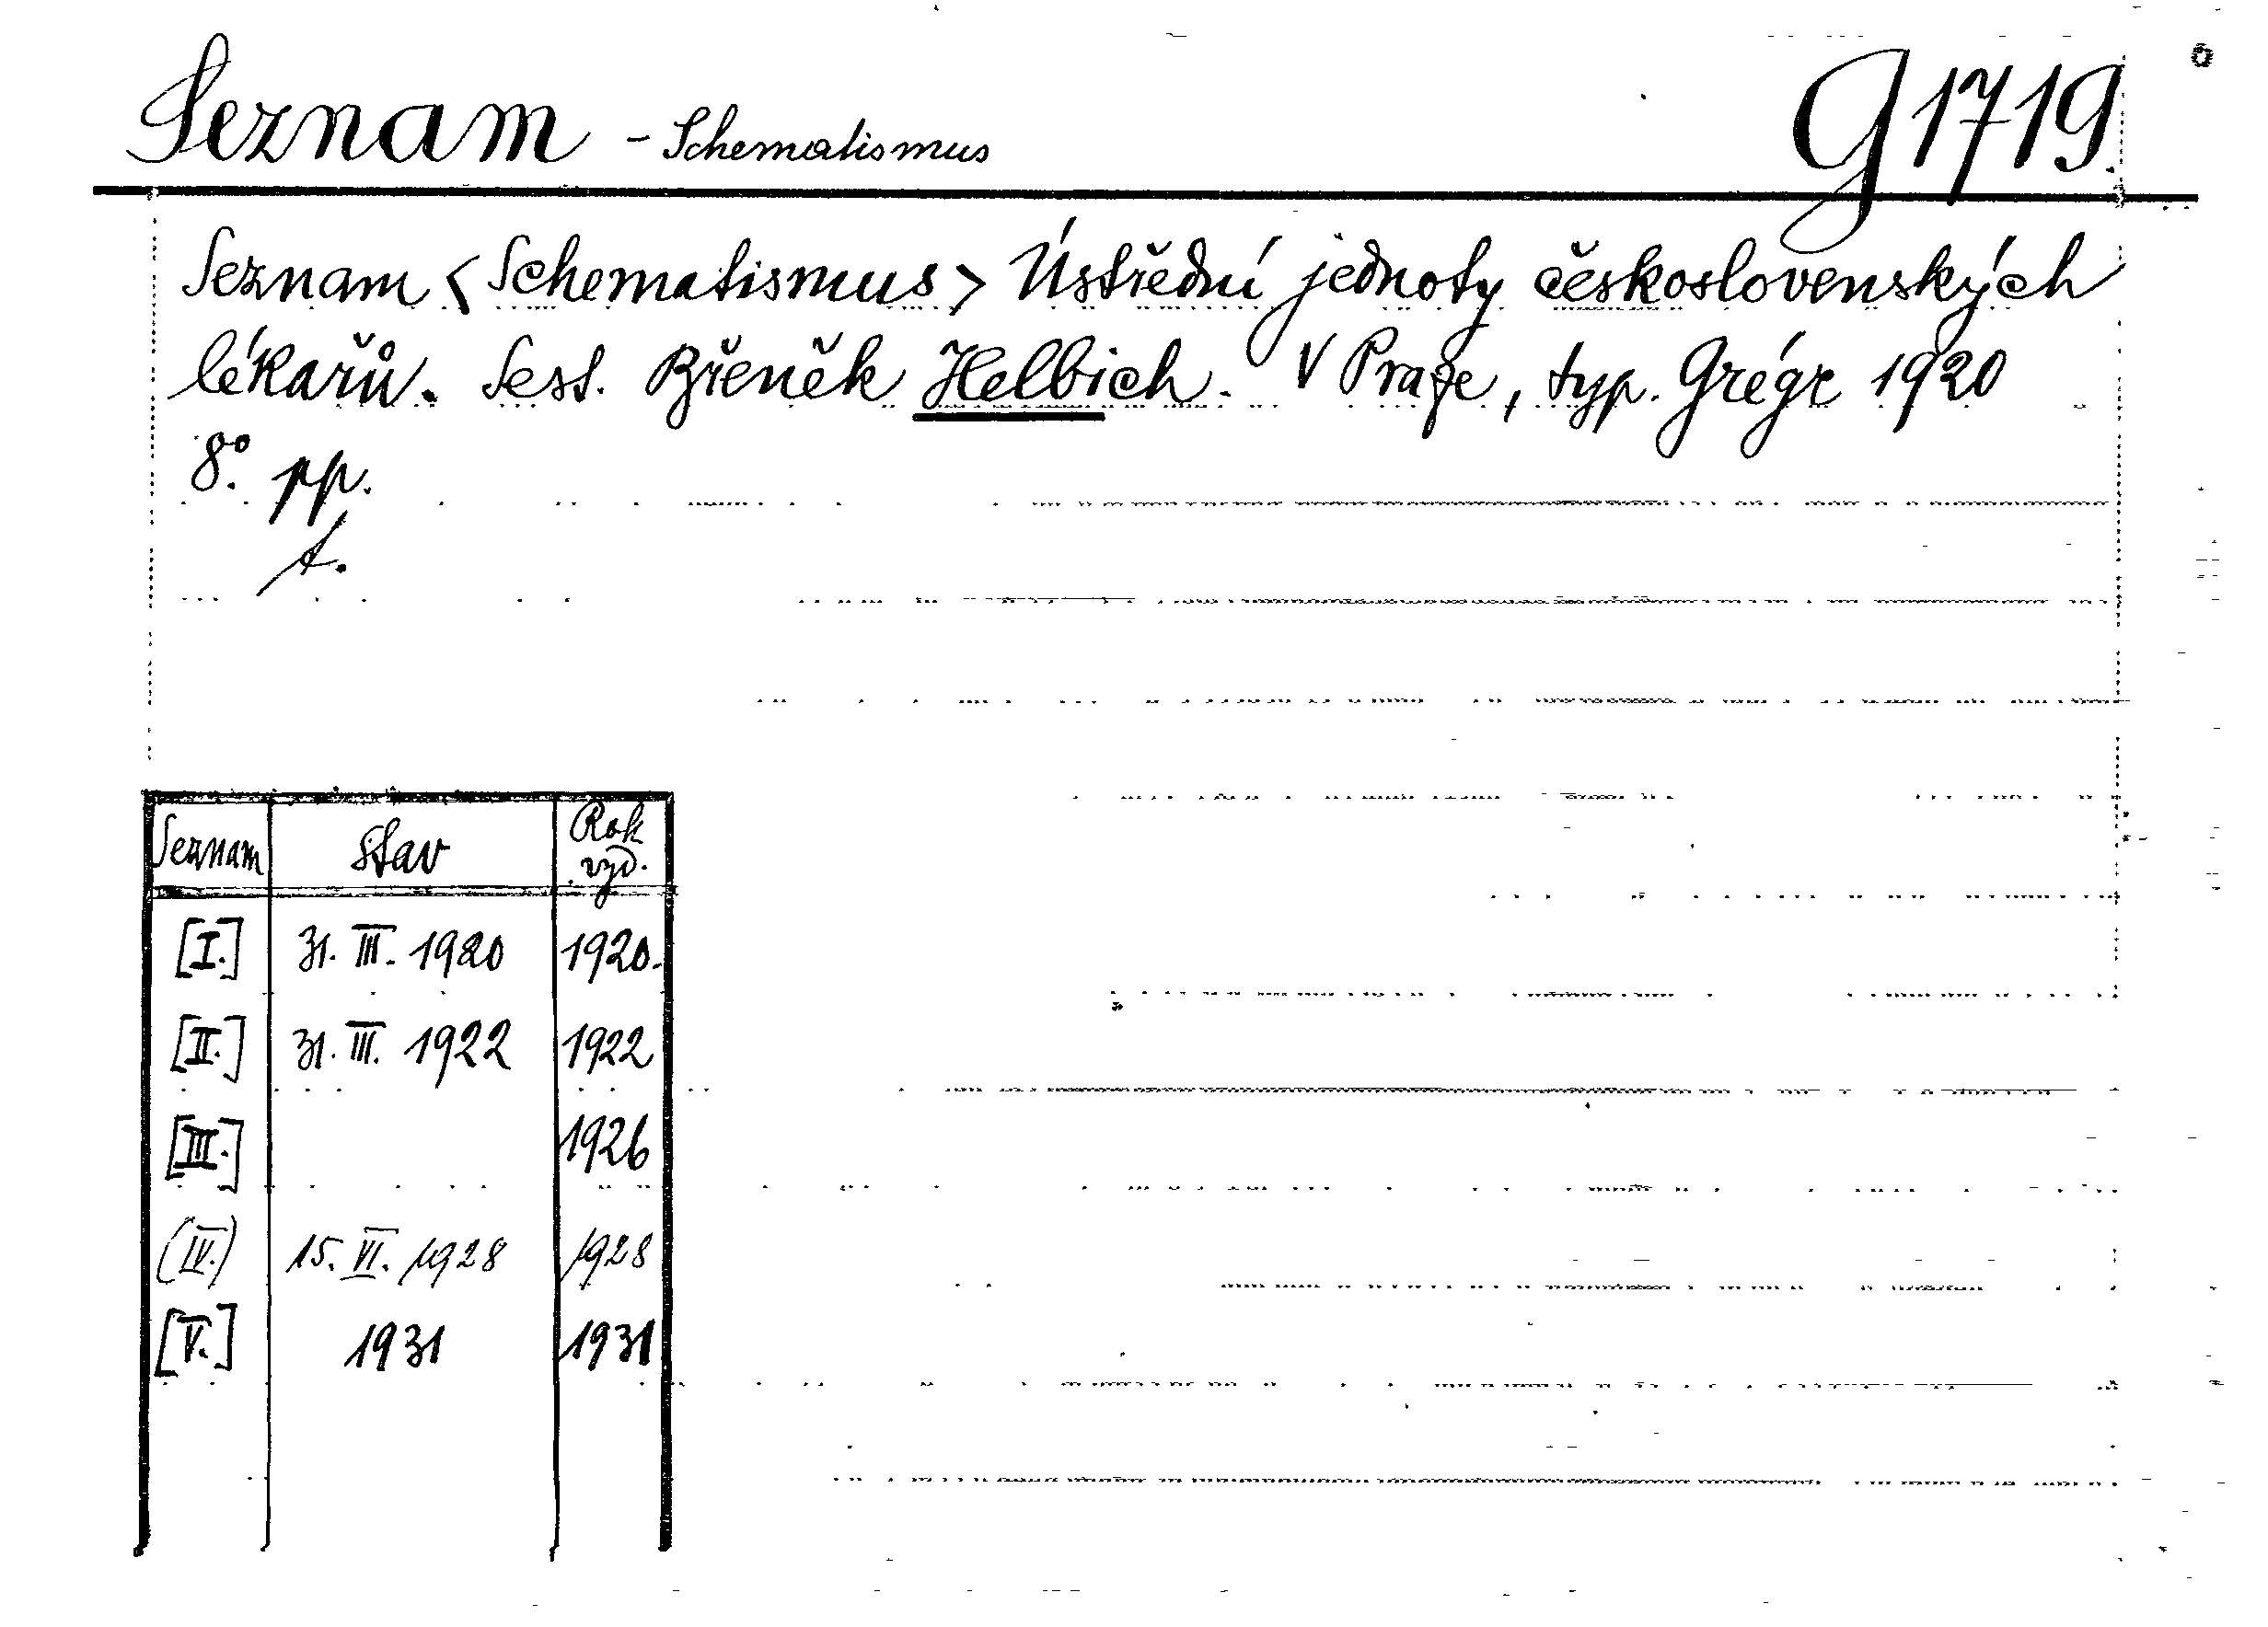 Seznam - Schematismus G 1719.
Seznam < Schematismus > Ústřední jednoty československých
lékařů. Sest. Břeněk Helbich. V Praze, typ. Grégr 1920
8°. pp.
t.
Seznam stav Rok vyd.
[I.] 31. III. 1920 1920.
[II.] 31. III. 1922 1922
[III.] 1926
(IV.) 15. VI. 1928 1928
[V.] 1931 1931